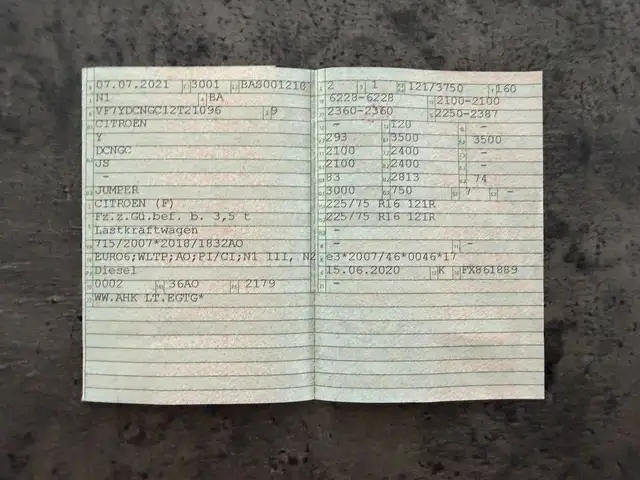 07.07.2021 3001 BAS001218
N1 BA
VF7YDCNGC12T21096 9
CITROEN
Y
DCNGC
JS
-
JUMPER
CITROEN (F)
Fz.z.Gü.bef. b. 3,5 t
Lastkraftwagen
715/2007*2018/1832AO
EURO6;WLTP;AO;PI/CI;N1 III, N2
Diesel
0002 36AO 2179
WW.AHK LT.EGTG*
2 1 121/3750 160
6228-6228 2100-2100
2360-2360 2250-2387
- 120 -
293 3500 3500
2100 2400 -
2100 2400 -
83 2813 74
3000 750 7 -
225/75 R16 121R
225/75 R16 121R
-
- -
e3*2007/46*0046*17
15.06.2020 K FX861889
-